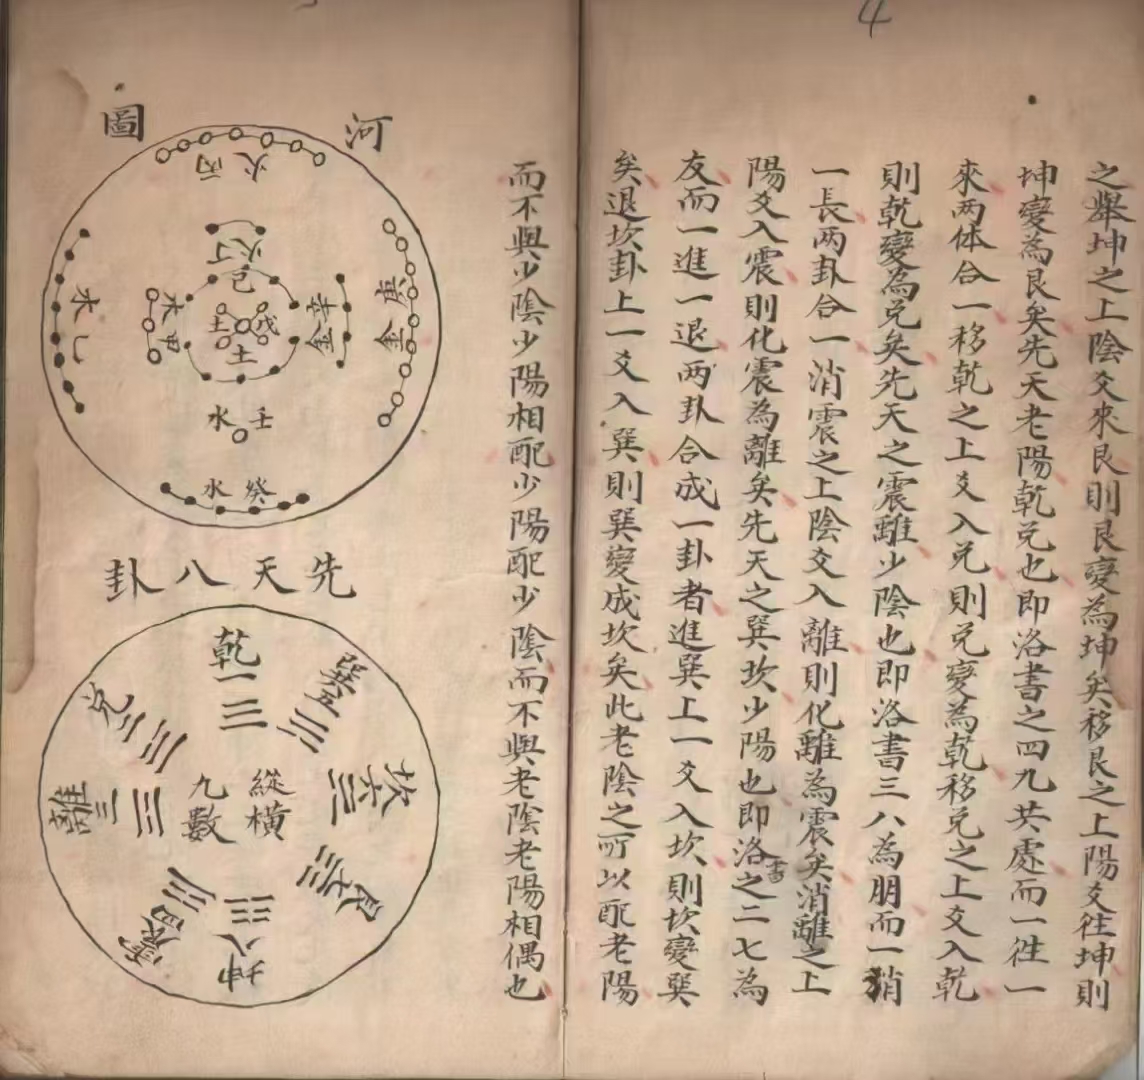 4
之舉坤之上陰爻來艮則艮變為坤矣移艮之上陽爻徃坤則
坤變為艮矣先天老陽乾兌也即洛書之四九共處而一徃一
來两体合一移乾之上爻入兌則兌變為乾移兌之上爻入乾
則乾變為兌矣先天之震離少陰也即洛書三八為朋而一消
一長两卦合一消震之上陰爻入離則化離為震矣消離之上
陽爻入震則化震為離矣先天之巽坎少陽也即洛書之二七為
友而一進一退两卦合成一卦者進巽上一爻入坎則坎變巽
矣退坎卦上一爻入巽則巽變成坎矣此老陰之所以配老陽
而不與少陰少陽相配少陽配少陰而不與老陰老陽相偶也
河圖
火丙
火丁
己
木甲
土戊
土
辛金
庚金
水壬
水癸
先天八卦
乾一
兌二
離三
震四
巽五
坎六
艮七
坤八
縱橫
九數